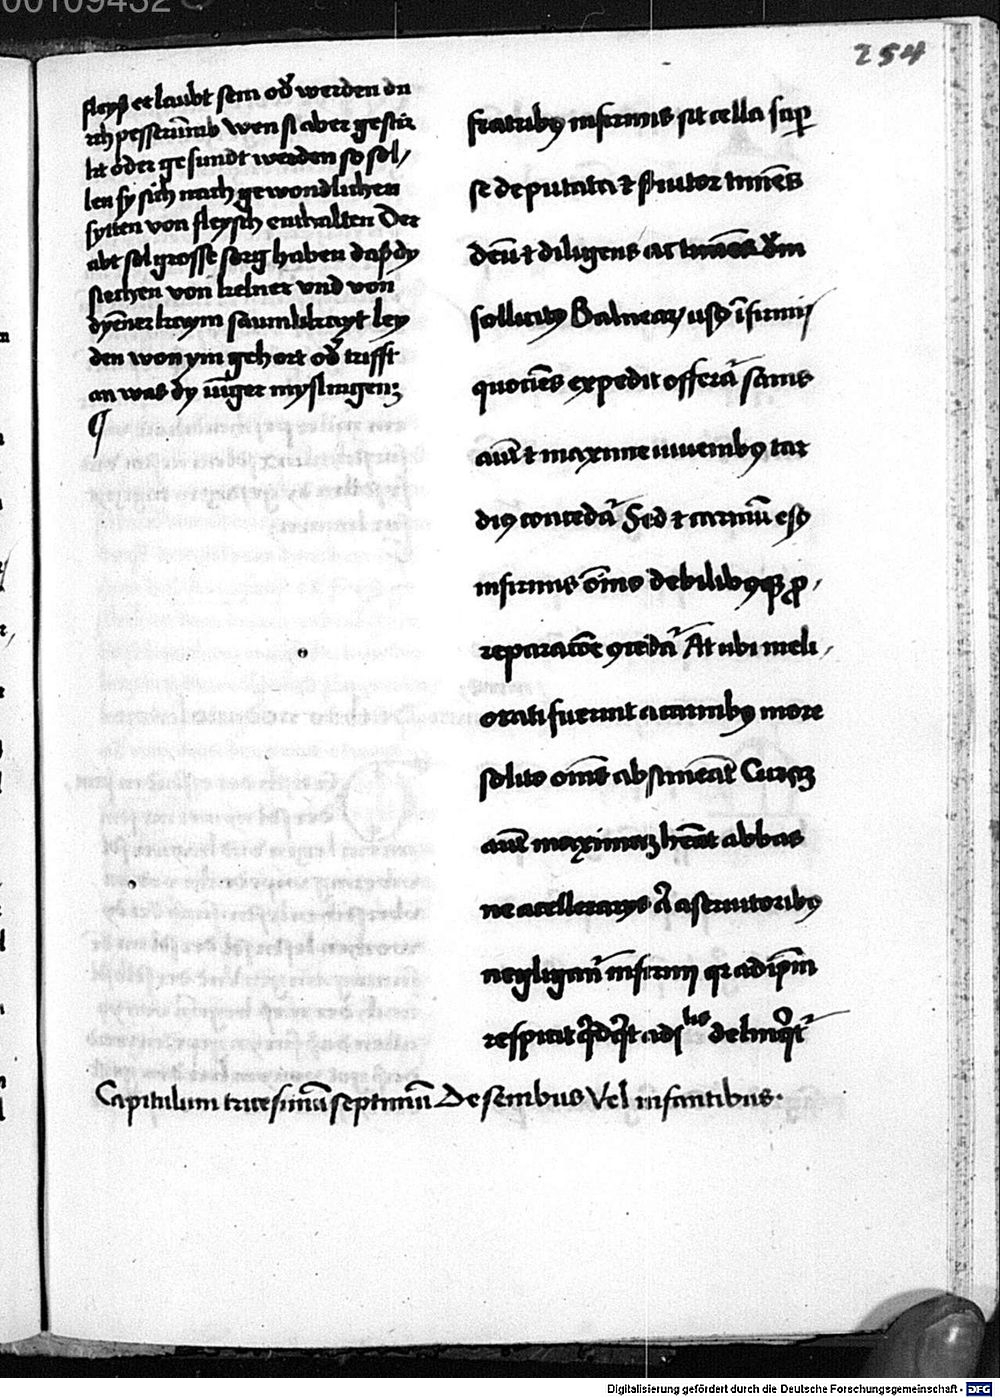 00109432
254
fleysch erlaubt sein od̕ werden du
rch pesserūnnb wen si aber gestir
kt oder gesundt werden so sol/
len sy sich nach gewondlichen
sytten von fleysch enthalten Der
abt sol grosse sorg haben das dy
siechen von kelner vnd von
dyēner kaym saumlikayt ley
den won ym gehort od̕ trifft
an was dy iūger myslingen
fratribꝰ infirmis sit cella sup̲
se deputata ⁊ s̕uitor timēs
deū ⁊ diligens ac
sollicitꝰ Balnear̨ usꝰ īfirmis
quociēs expedit offerat̕ sanis
aut̄ ⁊ maxime iuuenibꝰ tar
diꝰ concedat̕ Sed ⁊ carniū esꝰ
infirmis oīno debilibꝰqꝫ ꝓ
reparacōe ꝯcedat̕ At ubi meli
orati fuerint a carnibꝰ more
solito omēs abstineāt Curaꝫ
aut̄ maximaꝫ hēat abbas
ne a cellerarys a̕ a seruitoribꝰ
negligant̕ infirmi qr ad ip̄m
respicit qͥdqͥt a discipulis delinqͥt̕
Capitulum tricesimū septimū De senibus Vel infantibus.
Digitalisierung gefördert durch die Deutsche Forschungsgemeinschaft - DFG